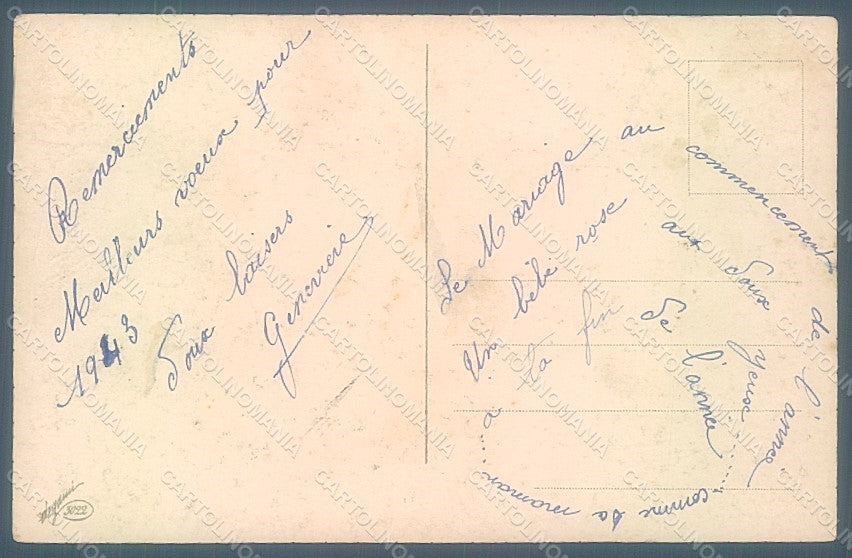 Remerciements
Meilleurs voeux pour
1943
Doux baisers
Geneviève
Le Mariage au commencement de l'année
Un bébé rose aux doux yeux.....
à la fin de l'année
..... comme sa maman.....
3022
CARTOLINOMANIA